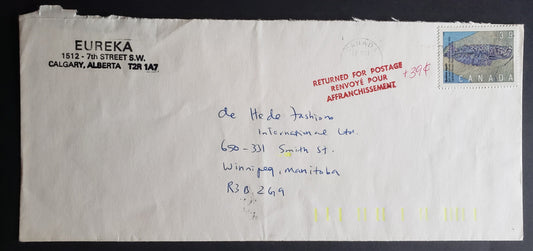 EUREKA
1512 - 7th STREET S.W.
CALGARY, ALBERTA T2R 1A7
CANADA
RETURNED FOR POSTAGE
RENVOYÉ POUR
AFFRANCHISSEMENT
+39¢
de Hede Fashions
International Ltd.
650-331 Smith St.
Winnipeg, Manitoba
R3B 2G9